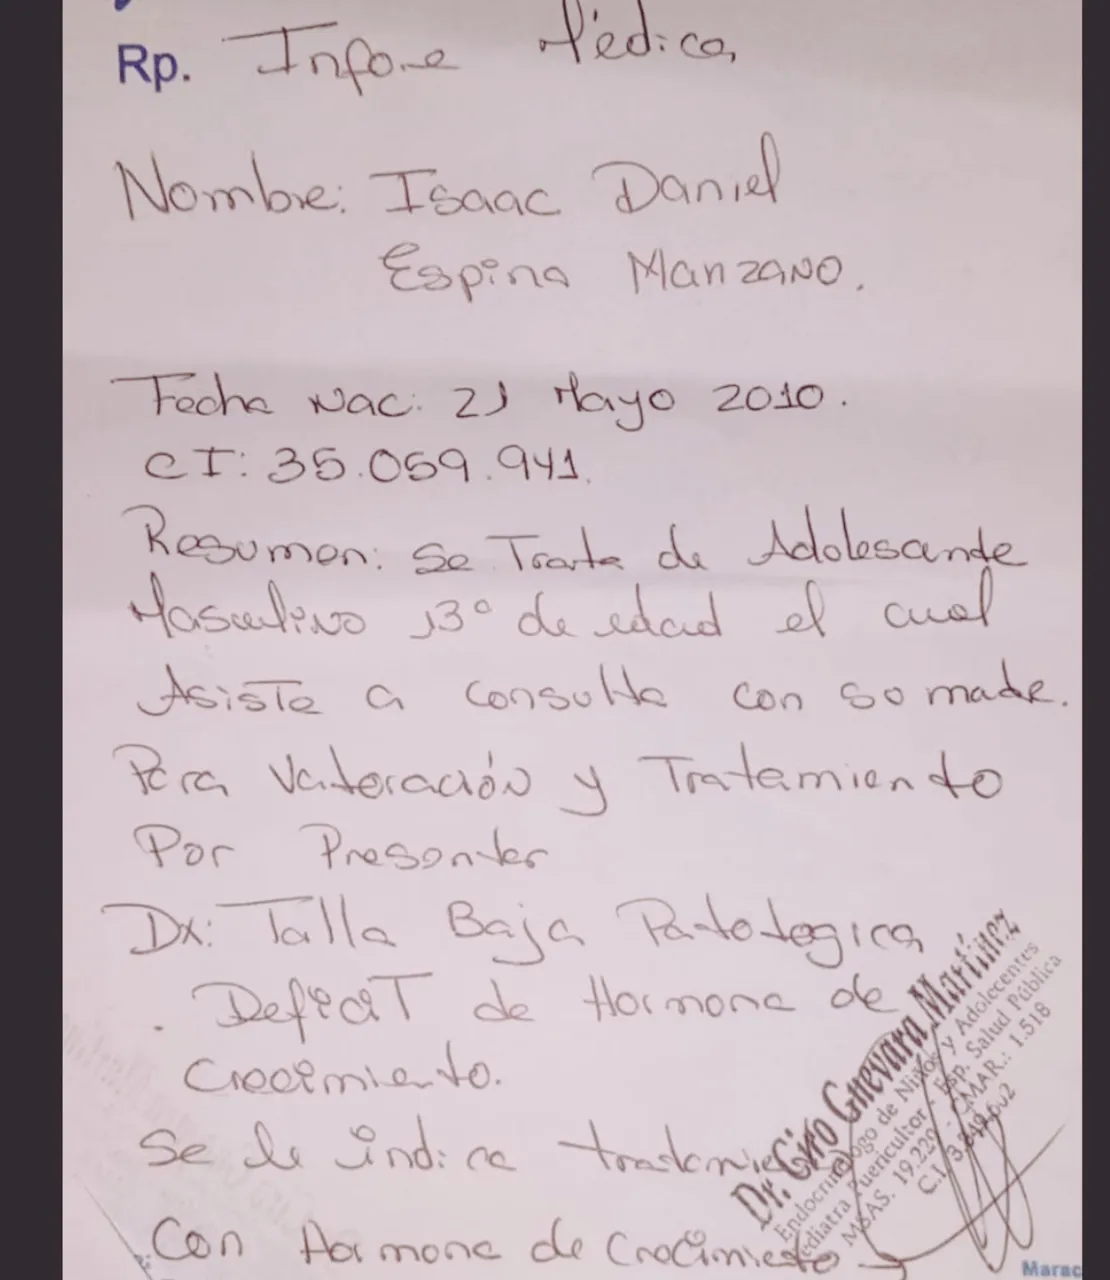 Rp. Infome Médica
Nombre: Isaac Daniel
Espina Manzano.
Fecha Nac: 21 Mayo 2010.
CI: 35.059.941.
Resumen: Se Trata de Adolesante
Masculino 13° de edad el cual
Asiste a consulta con so madre.
Para Valoración y Tratamiento
Por Presentar
Dx: Talla Baja Patologica
. Deficit de Hormona de
Crecimiento.
Se le indica tratamie
Con Hormona de Crecimiento
Dr. Ciro Guevara Martínez
Endocrinólogo de Niños y Adolecentes
Pediatra Puericultor - Esp. Salud Pública
MSAS. 19.220 - CMAR.: 1.518
C.I.
Marac